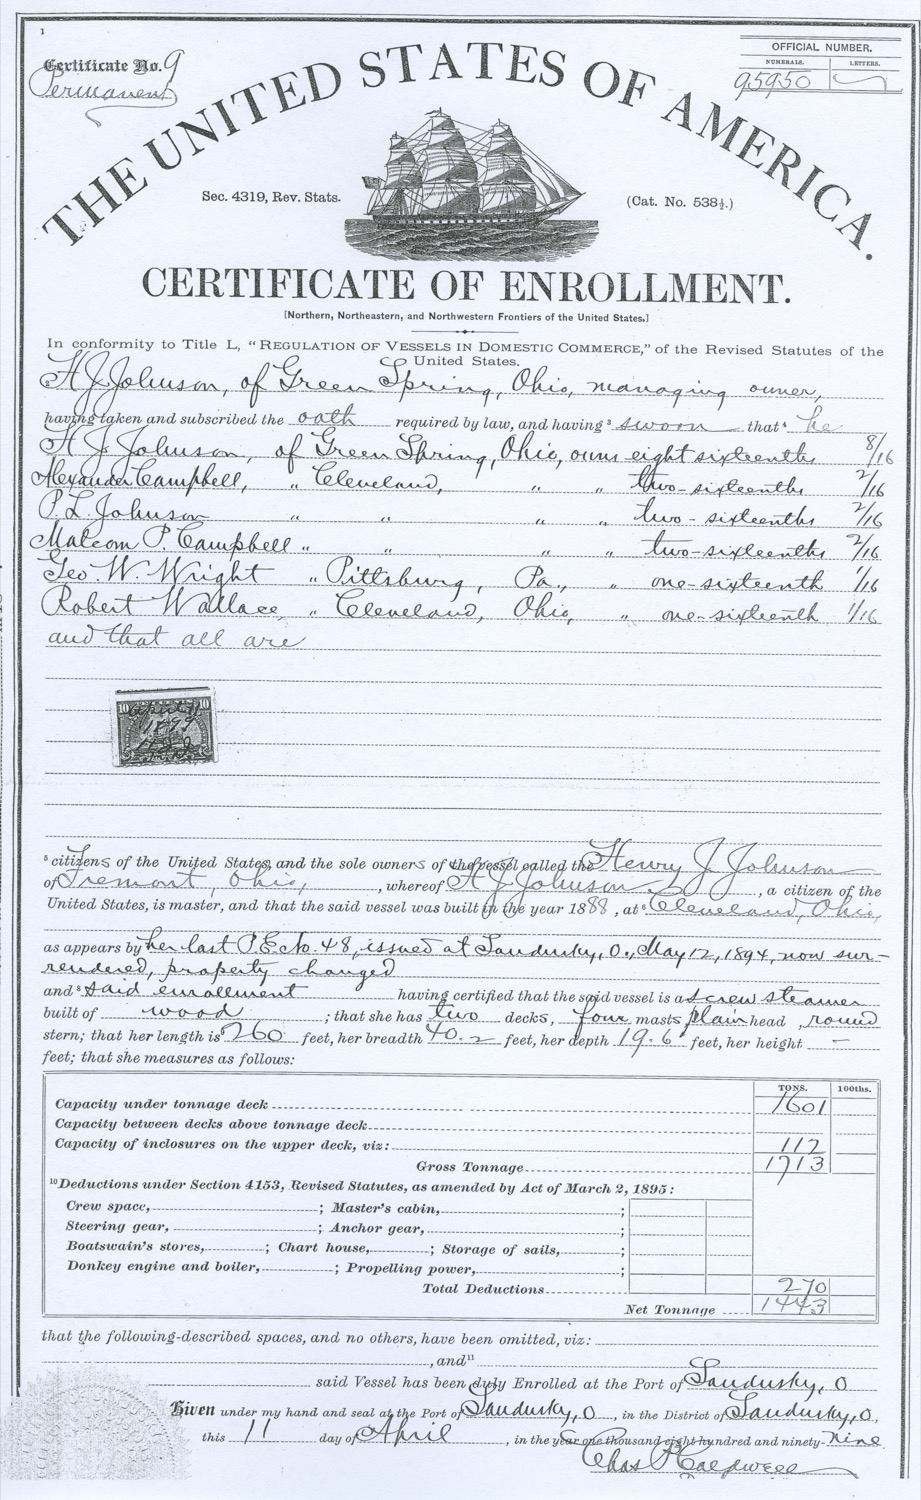 1
Certificate No. 9
Permanent
OFFICIAL NUMBER.
NUMERALS. LETTERS.
95950
THE UNITED STATES OF AMERICA.
Sec. 4319, Rev. Stats.
(Cat. No. 538½.)
CERTIFICATE OF ENROLLMENT.
[Northern, Northeastern, and Northwestern Frontiers of the United States.]
In conformity to Title L, "REGULATION OF VESSELS IN DOMESTIC COMMERCE," of the Revised Statutes of the
United States.
H J Johnson, of Green Spring, Ohio, managing owner,
having taken and subscribed the oath required by law, and having ³ sworn that ⁴ he
H J Johnson, of Green Spring, Ohio, owns eight sixteenths 8/16
Alexander Campbell, " Cleveland, " " two-sixteenths 2/16
P. L. Johnson " " " " two-sixteenths 2/16
Malcom P. Campbell " " " " two-sixteenths 2/16
Geo. W. Wright " Pittsburg, Pa., " one-sixteenth 1/16
Robert Wallace, " Cleveland, Ohio, " one-sixteenth 1/16
and that all are
10 10
April 11
1899
⁵ citizens of the United States, and the sole owners of the vessel called the Henry J Johnson
of Fremont, Ohio, , whereof H J Johnson is , a citizen of the
United States, is master, and that the said vessel was built in the year 1888, at ⁶ Cleveland, Ohio,
as appears by ⁷ her last P.E. No. 48, issued at Sandusky, O., May 12, 1894, now sur-
rendered, property changed
and ⁸ said enrollment having certified that the said vessel is a screw steamer
built of wood ; that she has two decks, four masts, plain head, round
stern; that her length is 260 feet, her breadth 40.2 feet, her depth 19.6 feet, her height —
feet; that she measures as follows:
TONS. 100ths.
Capacity under tonnage deck 1601
Capacity between decks above tonnage deck
Capacity of inclosures on the upper deck, viz: 112
Gross Tonnage 1713
¹⁰ Deductions under Section 4153, Revised Statutes, as amended by Act of March 2, 1895:
Crew space, ; Master's cabin, ;
Steering gear, ; Anchor gear, ;
Boatswain's stores, ; Chart house, ; Storage of sails, ;
Donkey engine and boiler, ; Propelling power, ;
Total Deductions 270
Net Tonnage 1443
that the following-described spaces, and no others, have been omitted, viz:
, and ¹¹
said Vessel has been duly Enrolled at the Port of Sandusky, O
Given under my hand and seal at the Port of Sandusky, O , in the District of Sandusky, O.,
this 11 day of April , in the year one thousand eight hundred and ninety-nine
Chas A Caldwell